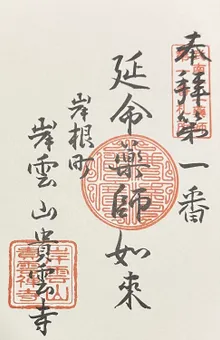 奉拜第一番
延命薬師如来
岸根町
岸雲山貴雲寺